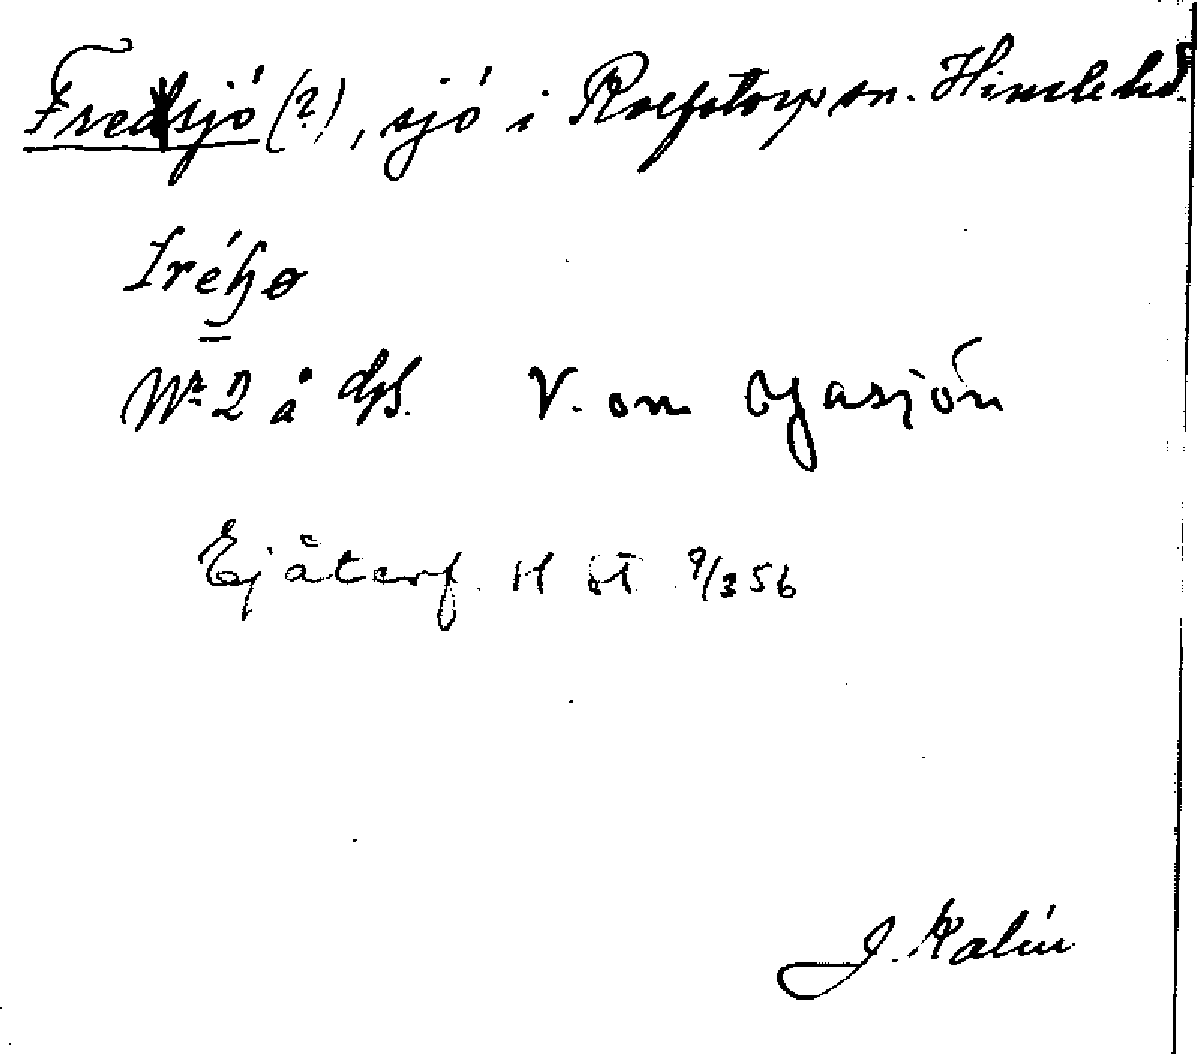 Fredsjö (?), sjö i Rolfstorp sn. Himle hd.
Nr 2 å dps. V. om Yasjön
Ej återf. H St 9/3 56
J. Kalén